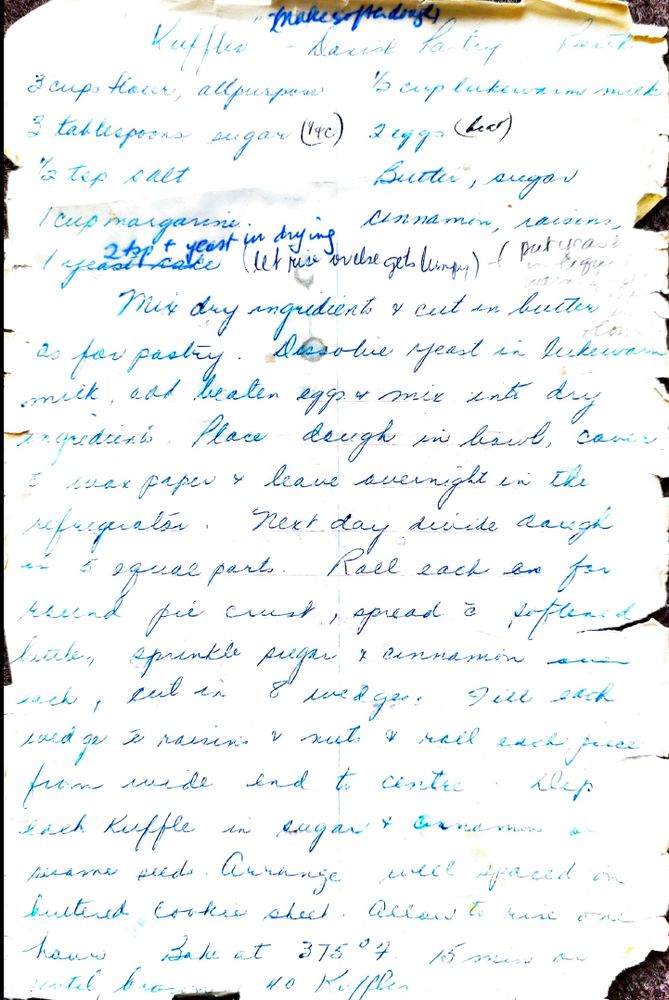 "Make softer dough"
Kuffles - Danish Pastry
3 cups flour, allpurpose ½ cup lukewarm milk
3 tablespoons sugar (¼c) 2 eggs (beat)
½ tsp salt Butter, sugar
1 cup margarine cinnamon, raisins,
2 tsp + yeast in drying
1 yeast cake (let rise or else gets lumpy) (put yeast
in
Mix dry ingredients & cut in butter
as for pastry. Dissolve yeast in lukewarm
milk, add beaten eggs & mix into dry
ingredients. Place dough in bowl, cover
c̄ wax paper & leave overnight in the
refrigerator. Next day divide dough
in 5 equal parts. Roll each as for
round pie crust, spread c̄ softened
butter, sprinkle sugar & cinnamon over
each, cut in 8 wedges. Fill each
wedge c̄ raisins & nuts & roll each piece
from wide end to centre. Dip
each Kuffle in sugar & cinnamon or
sesame seeds. Arrange well spaced on
buttered cookie sheet. Allow to rise one
hour Bake at 375°F. 15 min or
until brown 40 Kuffles